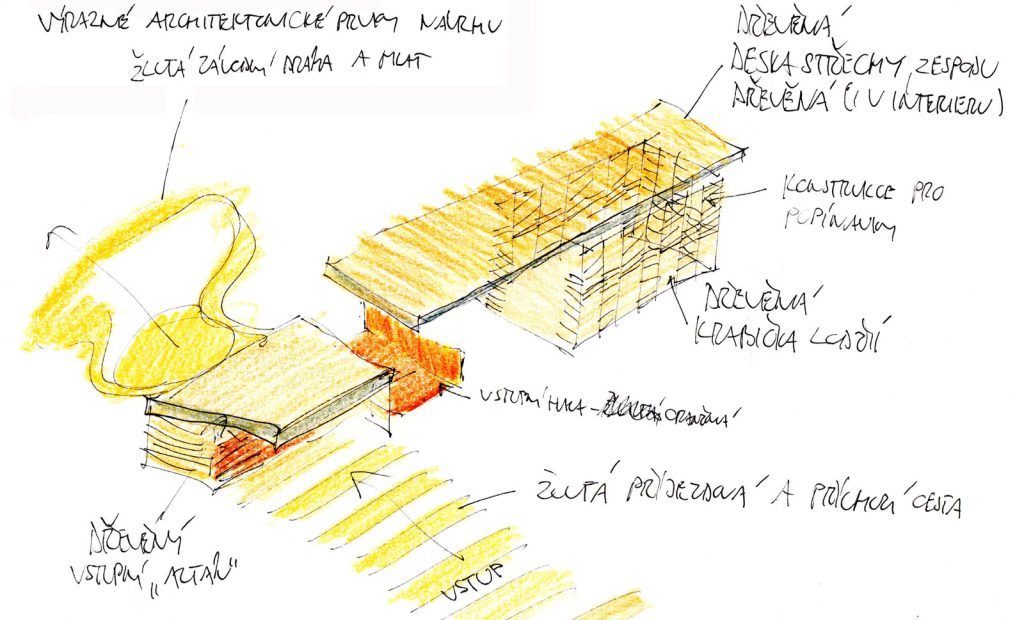 VÝRAZNÉ ARCHITEKTONICKÉ PRVKY NÁVRHU
ŽLUTÁ ZÁVODNÍ DRÁHA A MLAT
DŘEVĚNÁ
DESKA STŘECHY, ZESPODU
DŘEVĚNÁ (I V INTERIERU)
KONSTRUKCE PRO
POPÍNAVKY
DŘEVĚNÁ
KRABIČKA LODŽIÍ
VSTUPNÍ HALA - ORANŽOVÁ
ŽLUTÁ PŘÍJEZDOVÁ A PŘÍCHOZÍ CESTA
DŘEVĚNÝ
VSTUPNÍ „ALTÁN"
VSTUP